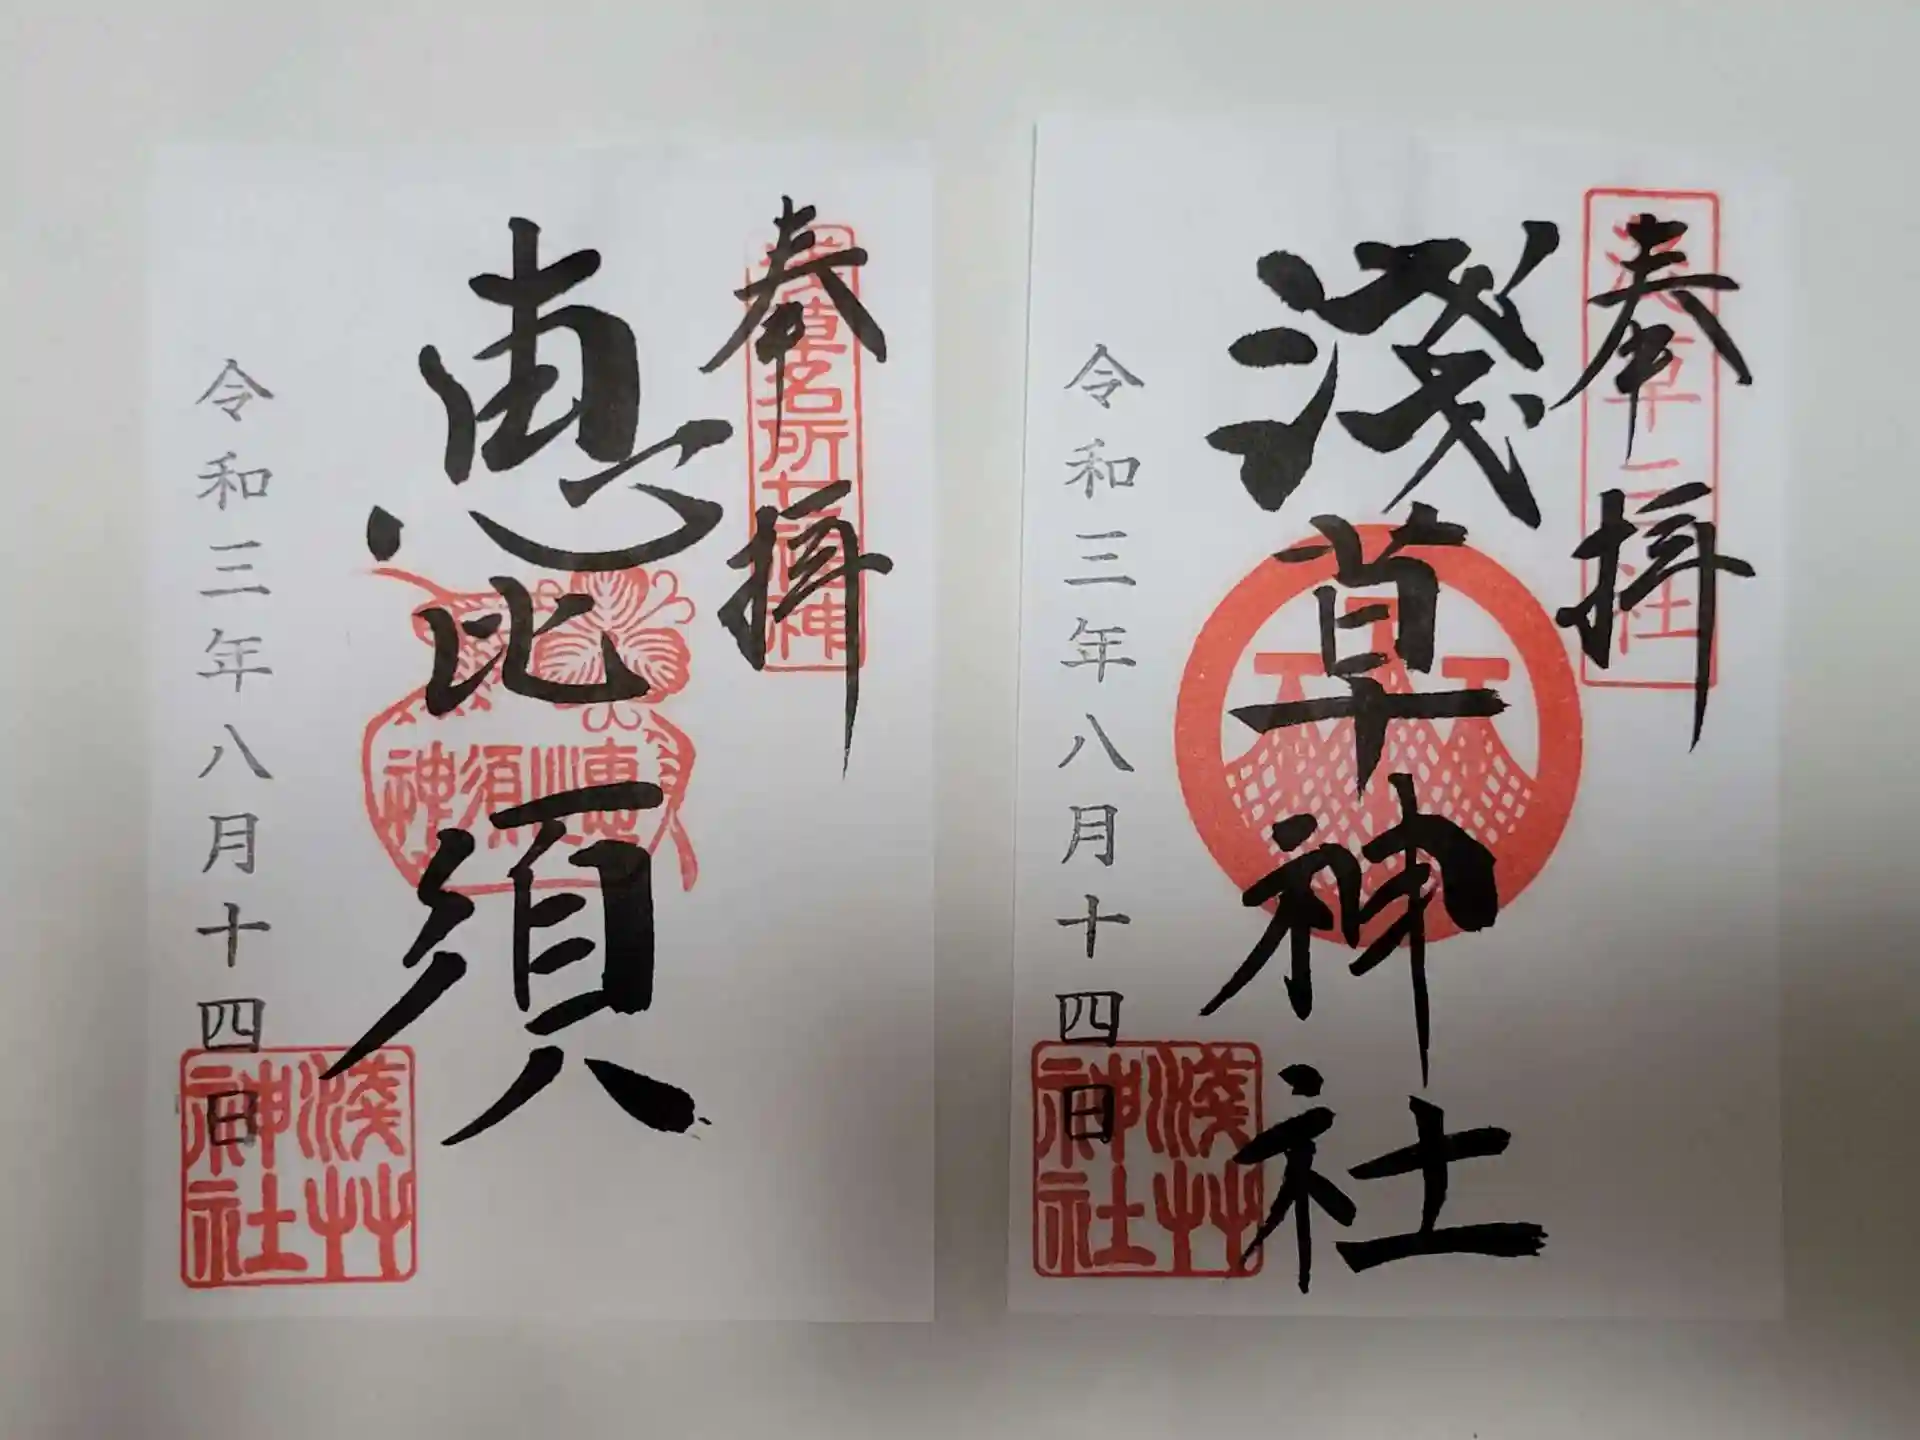 奉拝
淺草神社
令和三年八月十四日
淺草
神社
奉拝
浅草名所七福神
恵比須
恵比須神
令和三年八月十四日
淺草
神社